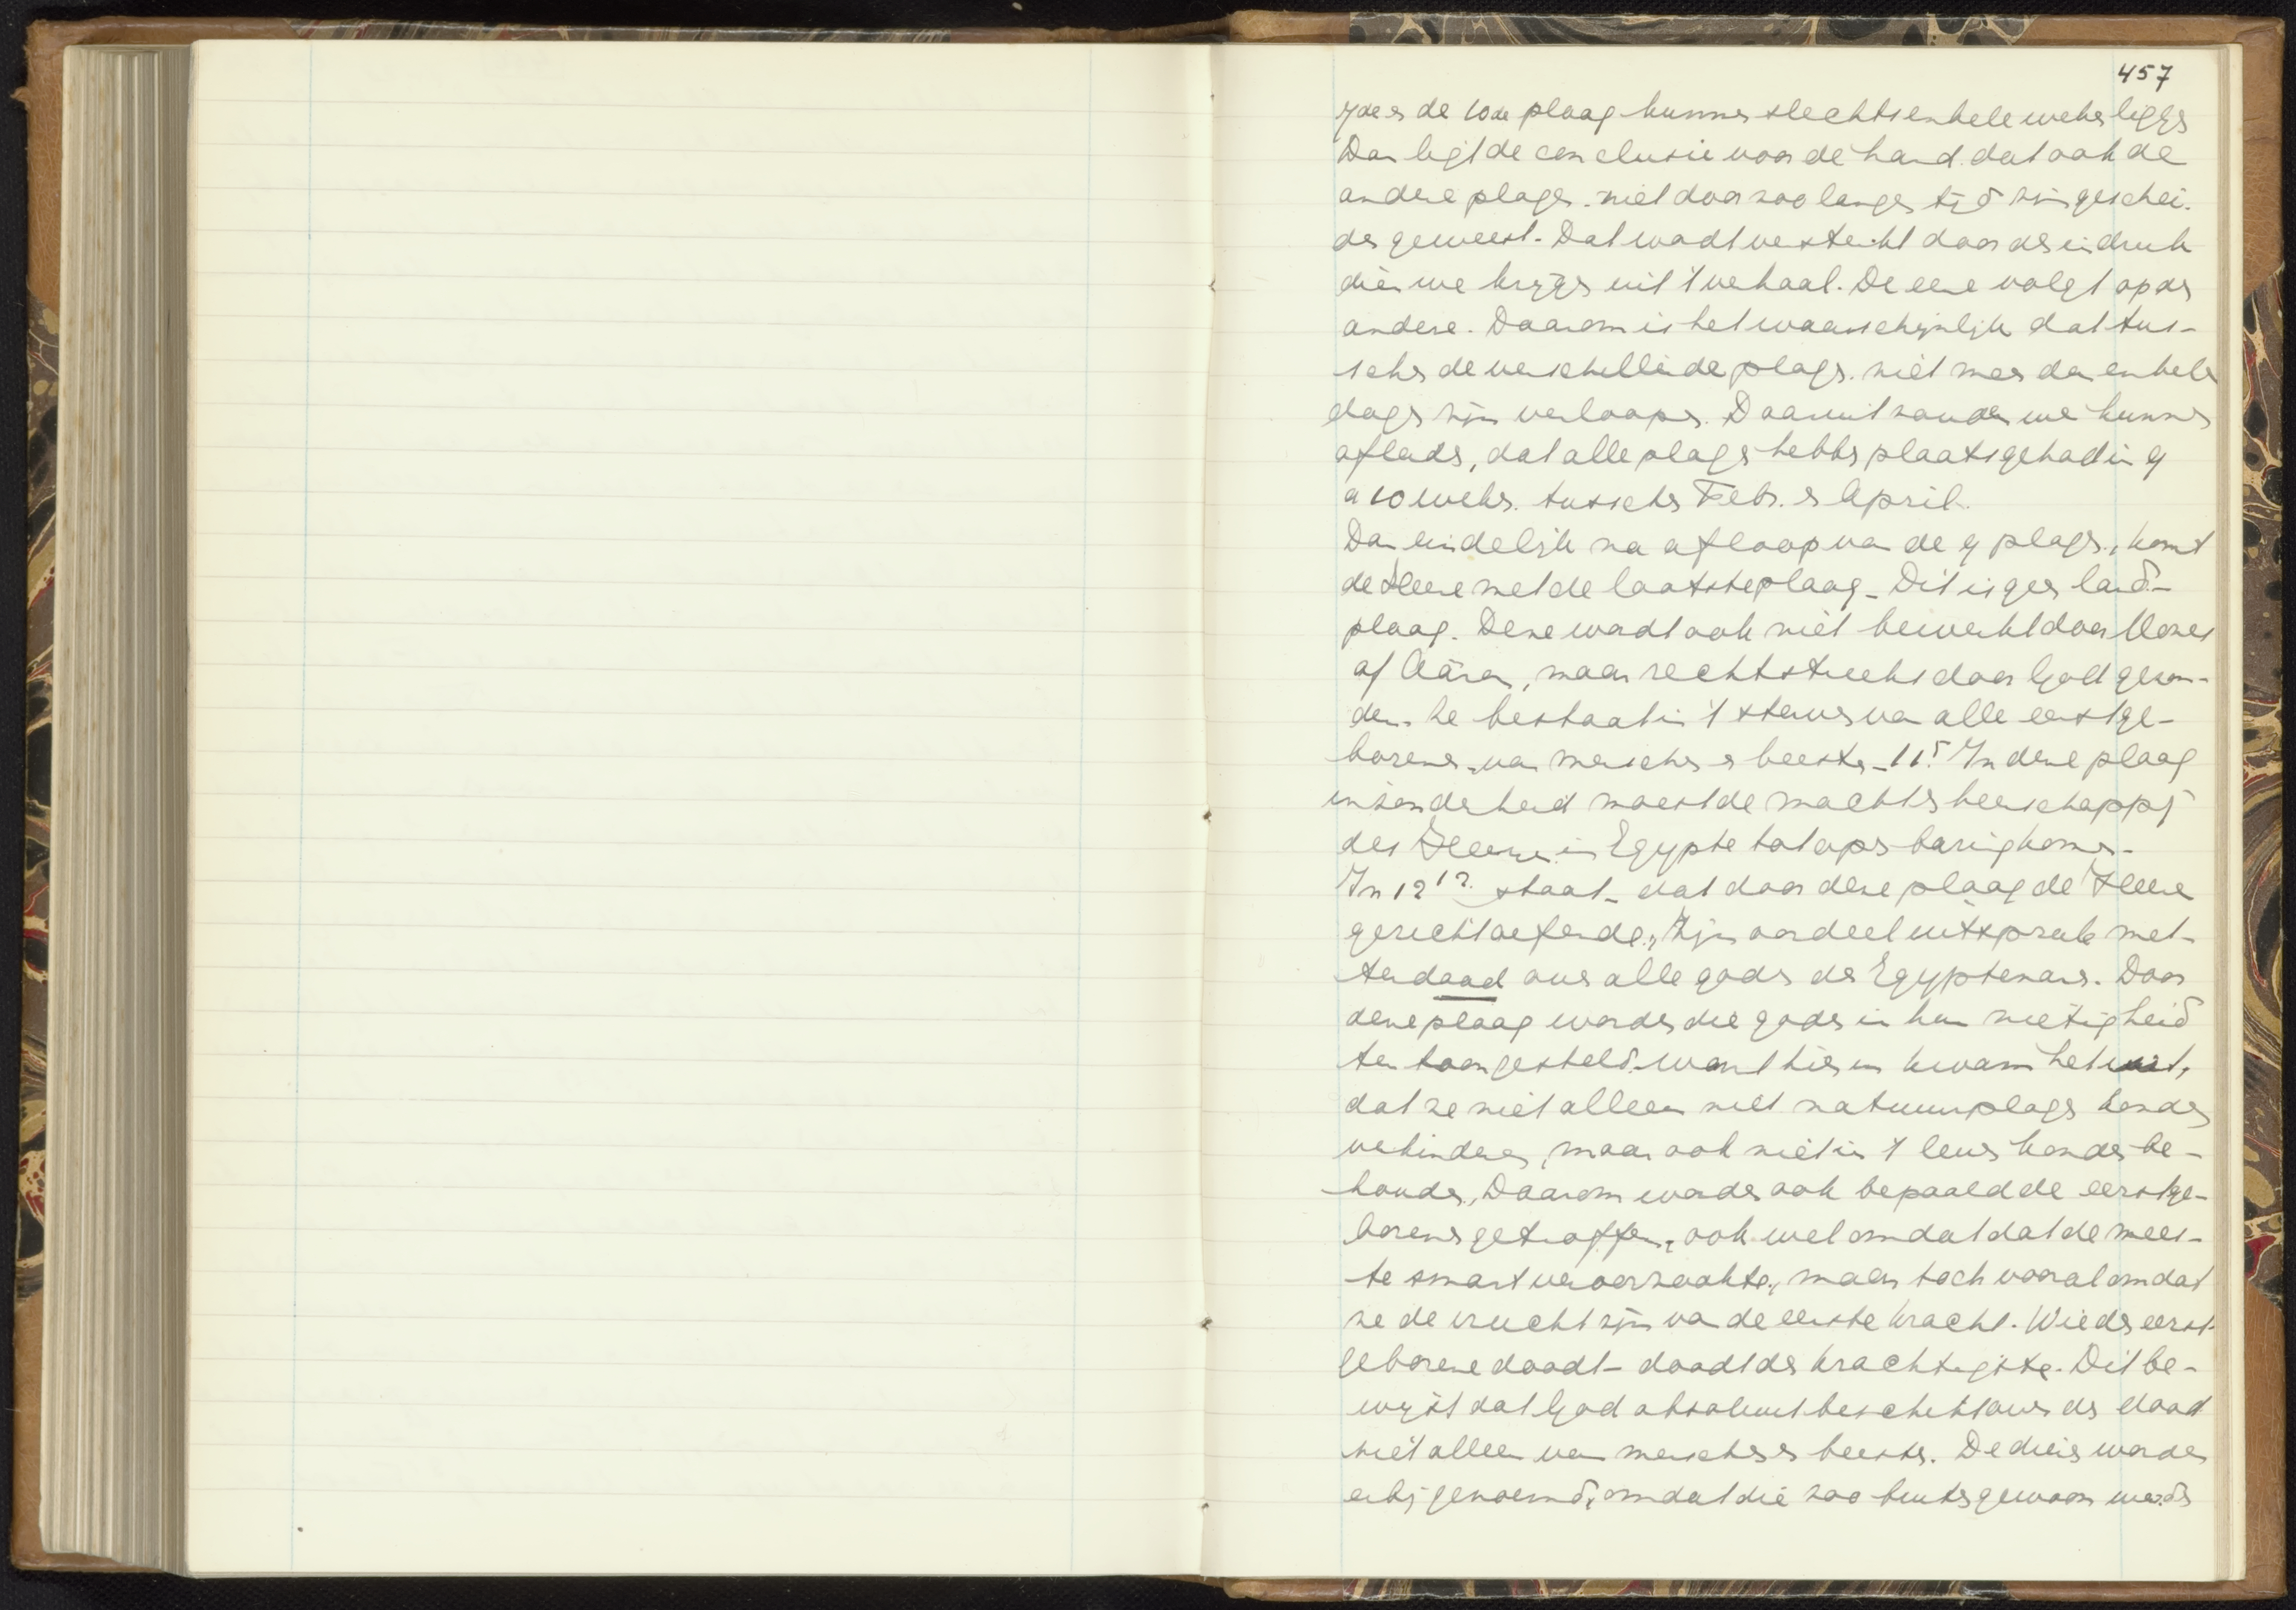 457
7de en de 10de plaag kunnen slechts enkele weken liggen
Dan ligt de conclusie voor de hand. dat ook de
andere plagen. niet door zoo langen tijd zijn geschei-
den geweest. Dat wordt versterkt door den indruk
dien we krijgen uit 't verhaal. De eene volgt op de
andere. Daarom is het waarschijnlijk dat tus-
schen de verschillende plagen. niet meer dan enkele
dagen zijn verloopen. Daaruit zouden we kunnen
afleiden, dat alle plagen hebben plaatsgehad in 9
a 10 weken. tusschen Febr. en April.
Dan eindelijk na afloop van de 9 plagen, komt
de Heere met de laatste plaag - Dit is geen land-
plaag. Deze wordt ook niet bewerkt door Mozes
of Aäron, maar rechtstreeks door God gezon-
den. Ze bestaat in 't sterven van alle eerstge-
borenen van menschen en beesten - 11⁵. In deze plaag
inzonderheid moest de macht en heerschappij
des Heeren in Egypte tot openbaring komen.
In 12¹². staat - dat door deze plaag de Heere
gericht oefende, Zijn oordeel uitsprak met-
terdaad over alle goden der Egyptenaren. Door
deze plaag worden die goden in hun nietigheid
ten toon gesteld. want hierin kwam het uit,
dat ze niet alleen niet natuurplagen konden
verhinderen, maar ook niet in 't leven konden be-
houden. Daarom worden ook bepaald de eerstge-
borenen getroffen, ook wel omdat dat de mees-
te smart veroorzaakte, maar toch vooral omdat
ze de vrucht zijn van de eerste kracht. Wie de eerst-
geborene doodt - doodt de krachtigste. Dit be-
wijst dat God absoluut beschikt over den dood
niet alleen van menschen en beesten. De dieren worden
erbij genoemd, omdat die zoo buitengewoon werden